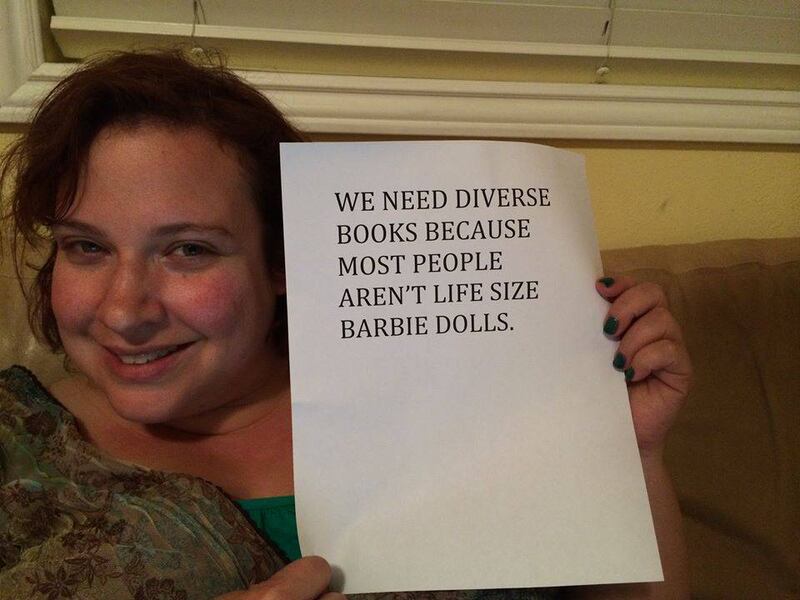 WE NEED DIVERSE
BOOKS BECAUSE
MOST PEOPLE
AREN'T LIFE SIZE
BARBIE DOLLS.